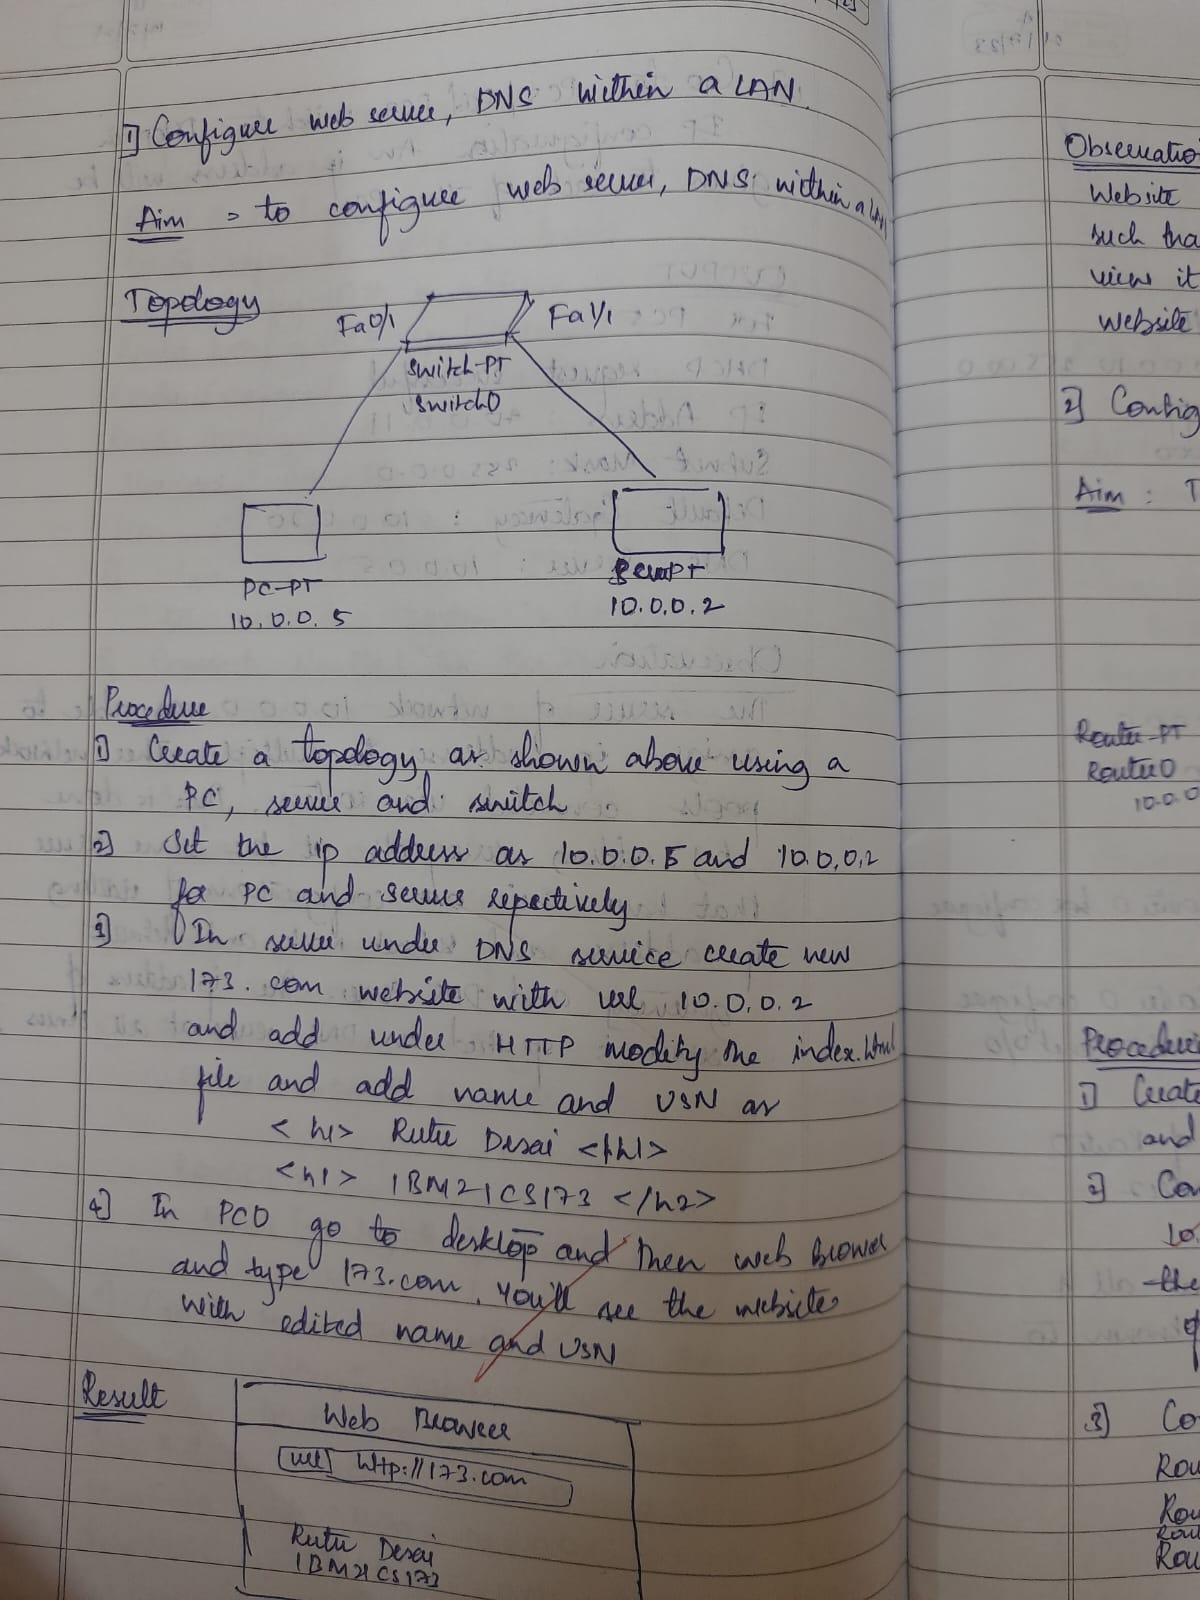 1] Configure web server, DNS within a LAN.
Aim → to configure web server, DNS within a LAN
Topology
Fa0/1
Fa1/1
Switch-PT
Switch0
PC-PT
10.0.0.5
10.0.0.2
Procedure
1] Create a topology as shown above using a
PC, server and switch
2] Set the ip address as 10.0.0.5 and 10.0.0.2
for PC and server repectively
3] In server under DNS service create new
173.com website with url 10.0.0.2
and add under HTTP modify the index.html
file and add name and USN as
<h1> Rutu Desai </h1>
<h1> 1BM21CS173 </h2>
4] In PC0 go to desktop and then web Browser
and type 173.com. You'll see the website
with edited name and USN
Result
Web Browser
url http://173.com
Rutu Desai
1BM21CS173
Observatio
Website
such tha
view it
website
2] Config
Aim : T
Router-PT
Router0
10.0.0
Procedure
1] Create
and
2] Con
10.
the
3] Co
Rou
Rou
Rou
Rou